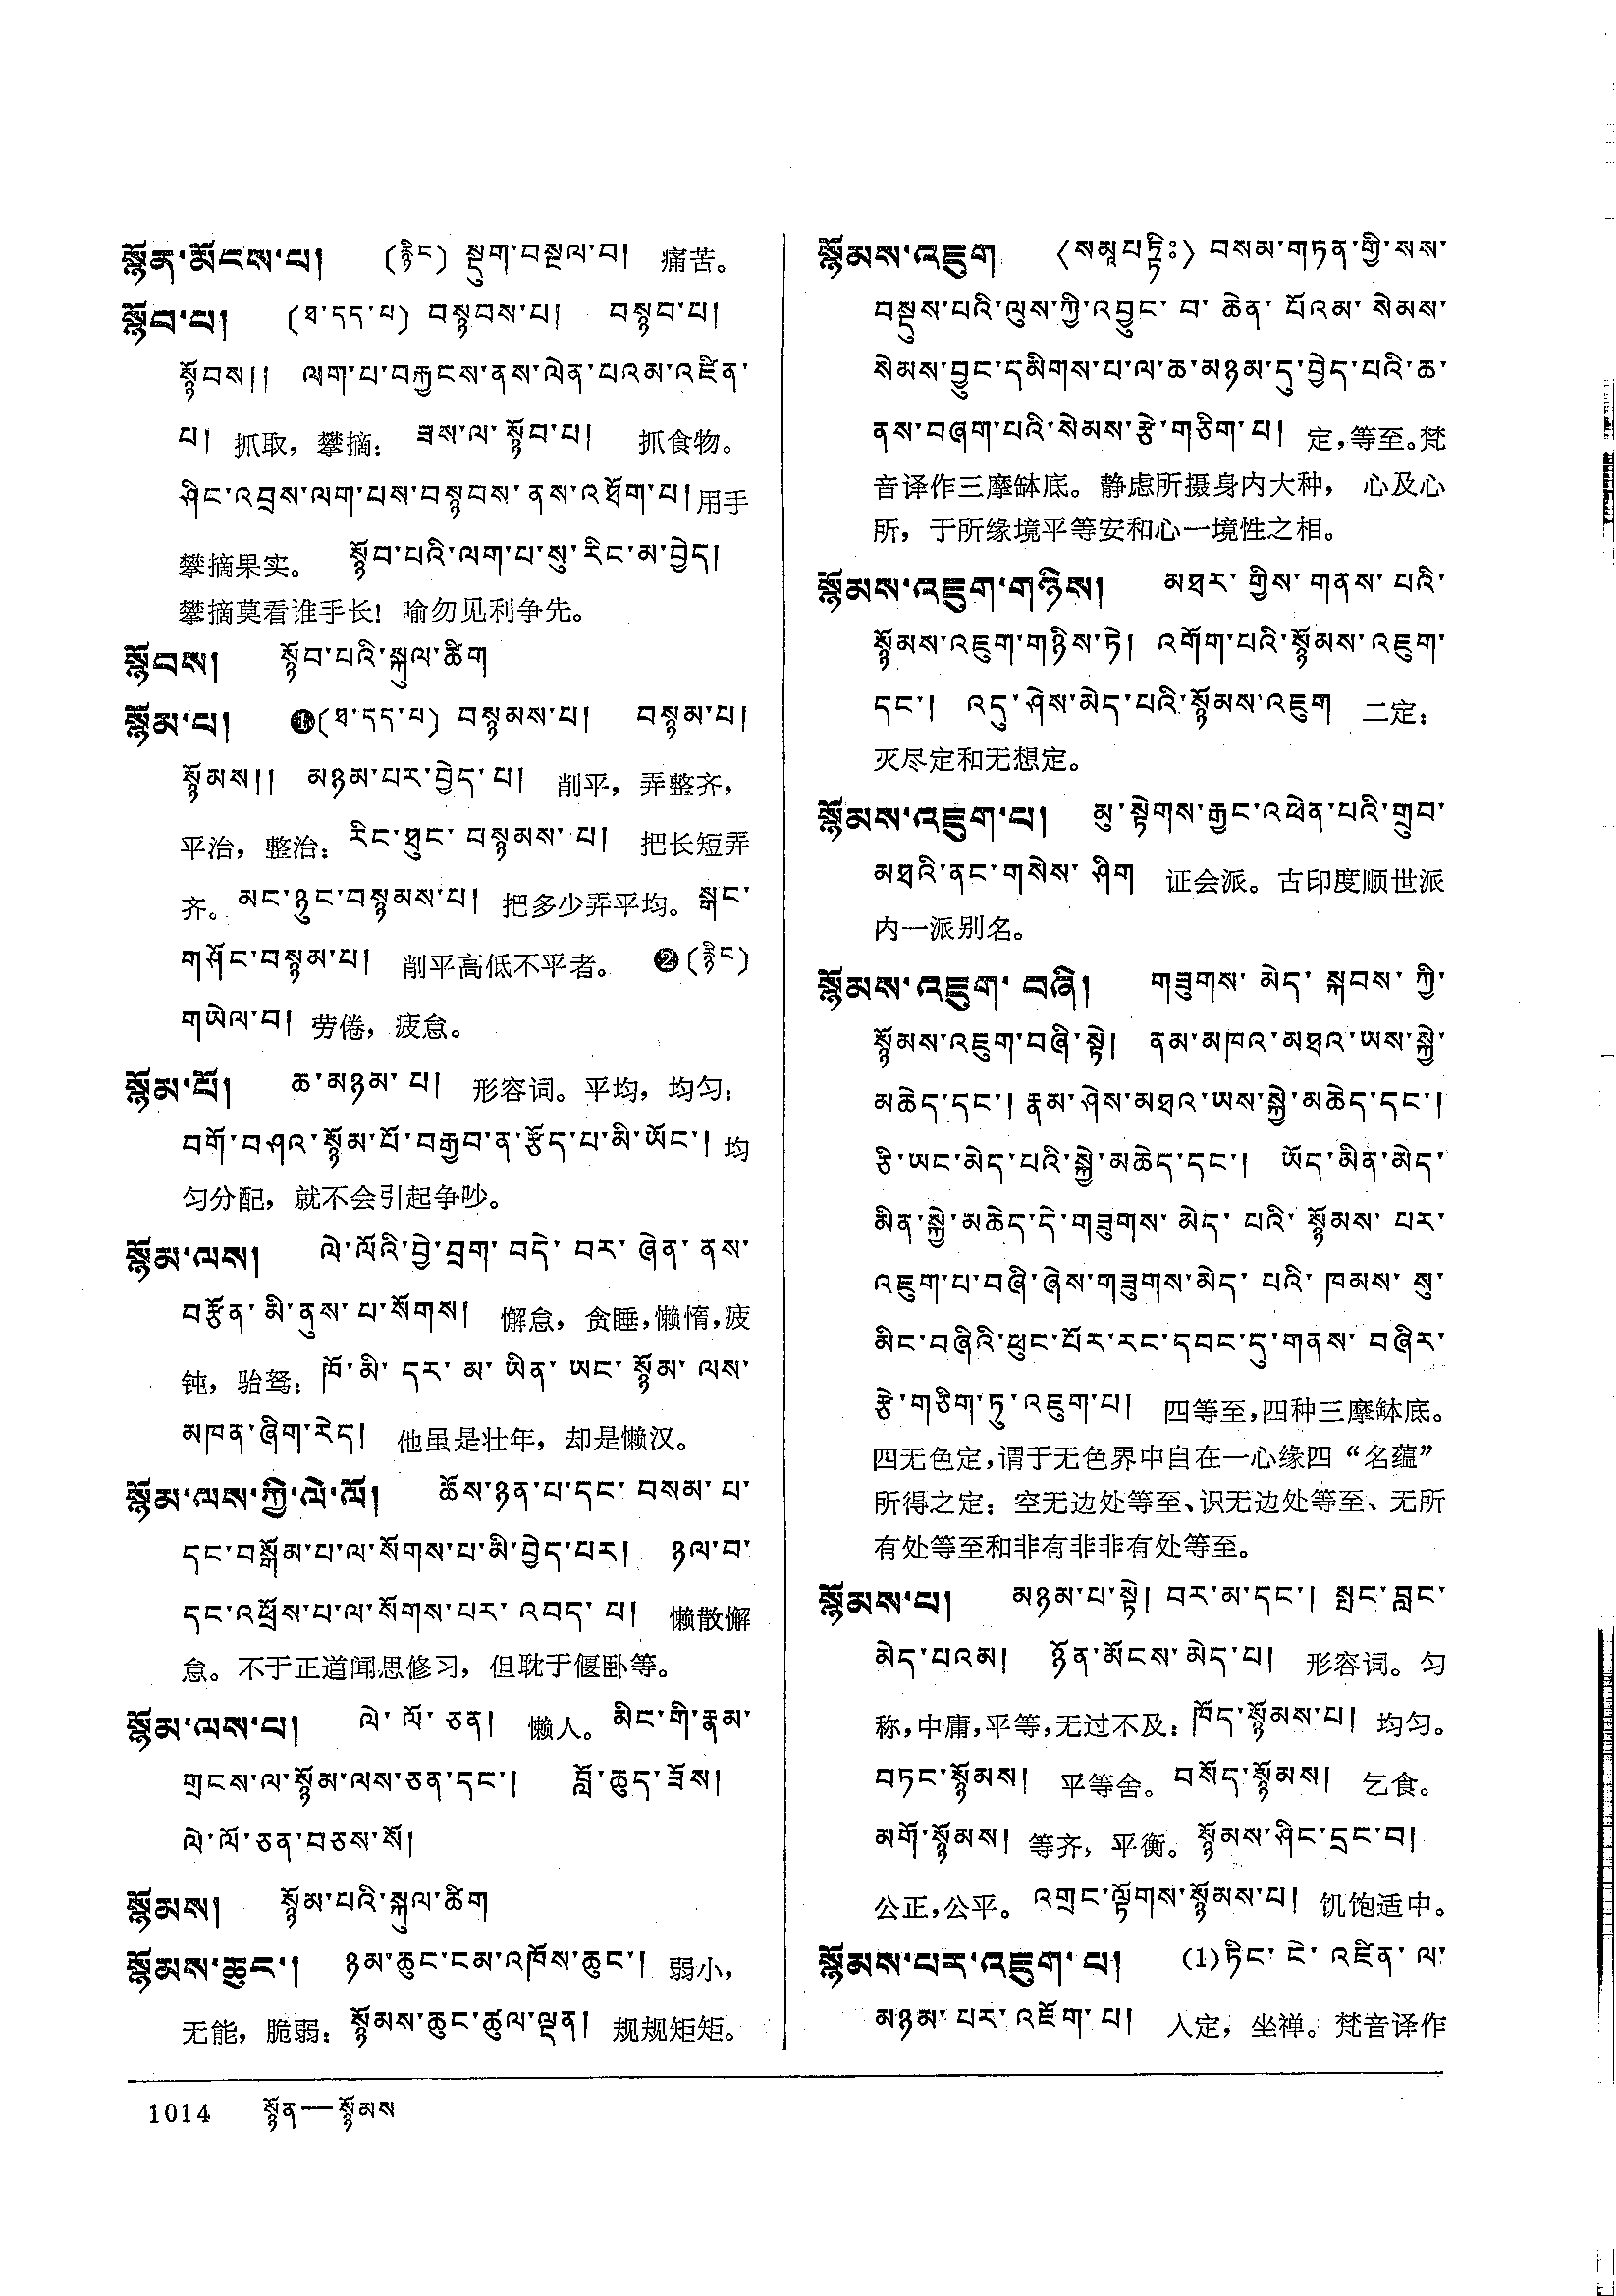 སྙོན་མོངས་པ། (རྙིང) སྡུག་བསྔལ་བ། 痛苦。
སྙོབ་པ། (ཐ་དད་པ) བསྙབས་པ། བསྙབ་པ།
སྙོབས།། ལག་པ་བརྐྱངས་ནས་ལེན་པའམ་འཛིན་
པ། 抓取，攀摘：ཟས་ལ་སྙོབ་པ། 抓食物。
ཤིང་འབྲས་ལག་པས་བསྙབས་ནས་འཐོག་པ།用手
攀摘果实。 སྙོབ་པའི་ལག་པ་སུ་རིང་མ་བྱེད།
攀摘莫看谁手长！喻勿见利争先。
སྙོབས། སྙོབ་པའི་སྐུལ་ཚིག
སྙོམ་པ། ❶(ཐ་དད་པ) བསྙམས་པ། བསྙམ་པ།
སྙོམས།། མཉམ་པར་བྱེད་པ། 削平，弄整齐，
平治，整治：རིང་ཐུང་བསྙམས་པ། 把长短弄
齐。མང་ཉུང་བསྙམས་པ། 把多少弄平均。སྒང་
གཤོང་བསྙམ་པ། 削平高低不平者。 ❷(རྙིང)
གཡེལ་བ། 劳倦，疲怠。
སྙོམ་པོ། ཆ་མཉམ་པ། 形容词。平均，均匀：
བགོ་བཤའ་སྙོམ་པོ་བརྒྱབ་ན་རྩོད་པ་མི་ཡོང་། 均
匀分配，就不会引起争吵。
སྙོམ་ལས། ལེ་ལོའི་བྱེ་བྲག་བདེ་བར་ཞེན་ནས་
བརྩོན་མི་ནུས་པ་སོགས། 懈怠，贪睡，懒惰，疲
钝，骀驽：ཁོ་མི་དར་མ་ཡིན་ཡང་སྙོམ་ལས་
མཁན་ཞིག་རེད། 他虽是壮年，却是懒汉。
སྙོམ་ལས་ཀྱི་ལེ་ལོ། ཆོས་ཉན་པ་དང་བསམ་པ་
དང་བསྒོམ་པ་ལ་སོགས་པ་མི་བྱེད་པར། ཉལ་བ་
དང་འཕྲོས་པ་ལ་སོགས་པར་འབད་པ། 懒散懈
怠。不于正道闻思修习，但耽于偃卧等。
སྙོམ་ལས་པ། ལེ་ལོ་ཅན། 懒人。མིང་གི་རྣམ་
གྲངས་ལ་སྙོམ་ལས་ཅན་དང་། བློ་ཆུད་ཟོས།
ལེ་ལོ་ཅན་བཅས་སོ།
སྙོམས། སྙོམ་པའི་སྐུལ་ཚིག
སྙོམས་ཆུང་། ཉམ་ཆུང་ངམ་འཁོས་ཆུང་། 弱小，
无能，脆弱：སྙོམས་ཆུང་ཚུལ་ལྡན། 规规矩矩。
སྙོམས་འཇུག 〈སམཱཔཏྟིཿ〉བསམ་གཏན་གྱི་སས་
བསྡུས་པའི་ལུས་ཀྱི་འབྱུང་བ་ཆེན་པོའམ་སེམས་
སེམས་བྱུང་དམིགས་པ་ལ་ཆ་མཉམ་དུ་བྱེད་པའི་ཆ་
ནས་བཞག་པའི་སེམས་རྩེ་གཅིག་པ། 定，等至。梵
音译作三摩缽底。静虑所摄身内大种， 心及心
所，于所缘境平等安和心一境性之相。
སྙོམས་འཇུག་གཉིས། མཐར་གྱིས་གནས་པའི་
སྙོམས་འཇུག་གཉིས་ཏེ། འགོག་པའི་སྙོམས་འཇུག་
དང་། འདུ་ཤེས་མེད་པའི་སྙོམས་འཇུག 二定：
灭尽定和无想定。
སྙོམས་འཇུག་པ། མུ་སྟེགས་རྒྱང་འཕེན་པའི་གྲུབ་
མཐའི་ནང་གསེས་ཤིག 证会派。古印度顺世派
内一派别名。
སྙོམས་འཇུག་བཞི། གཟུགས་མེད་སྐབས་ཀྱི་
སྙོམས་འཇུག་བཞི་སྟེ། ནམ་མཁའ་མཐའ་ཡས་སྐྱེ་
མཆེད་དང་། རྣམ་ཤེས་མཐའ་ཡས་སྐྱེ་མཆེད་དང་།
ཅི་ཡང་མེད་པའི་སྐྱེ་མཆེད་དང་། ཡོད་མིན་མེད་
མིན་སྐྱེ་མཆེད་དེ་གཟུགས་མེད་པའི་སྙོམས་པར་
འཇུག་པ་བཞི་ཞེས་གཟུགས་མེད་པའི་ཁམས་སུ་
མིང་བཞིའི་ཕུང་པོར་རང་དབང་དུ་གནས་བཞིར་
རྩེ་གཅིག་ཏུ་འཇུག་པ། 四等至，四种三摩缽底。
四无色定，谓于无色界中自在一心缘四“名蕴”
所得之定：空无边处等至、识无边处等至、无所
有处等至和非有非非有处等至。
སྙོམས་པ། མཉམ་པ་སྟེ། བར་མ་དང་། སྤང་བླང་
མེད་པའམ། ཉོན་མོངས་མེད་པ། 形容词。匀
称，中庸，平等，无过不及：ཁོད་སྙོམས་པ། 均匀。
བཏང་སྙོམས། 平等舍。བསོད་སྙོམས། 乞食。
མགོ་སྙོམས། 等齐，平衡。སྙོམས་ཤིང་དྲང་བ།
公正，公平。འགྲང་ལྟོགས་སྙོམས་པ། 饥饱适中。
སྙོམས་པར་འཇུག་པ། (1)ཏིང་ངེ་འཛིན་ལ་
མཉམ་པར་འཇོག་པ། 入定，坐禅。梵音译作
1014 སྙོན—སྙོམས